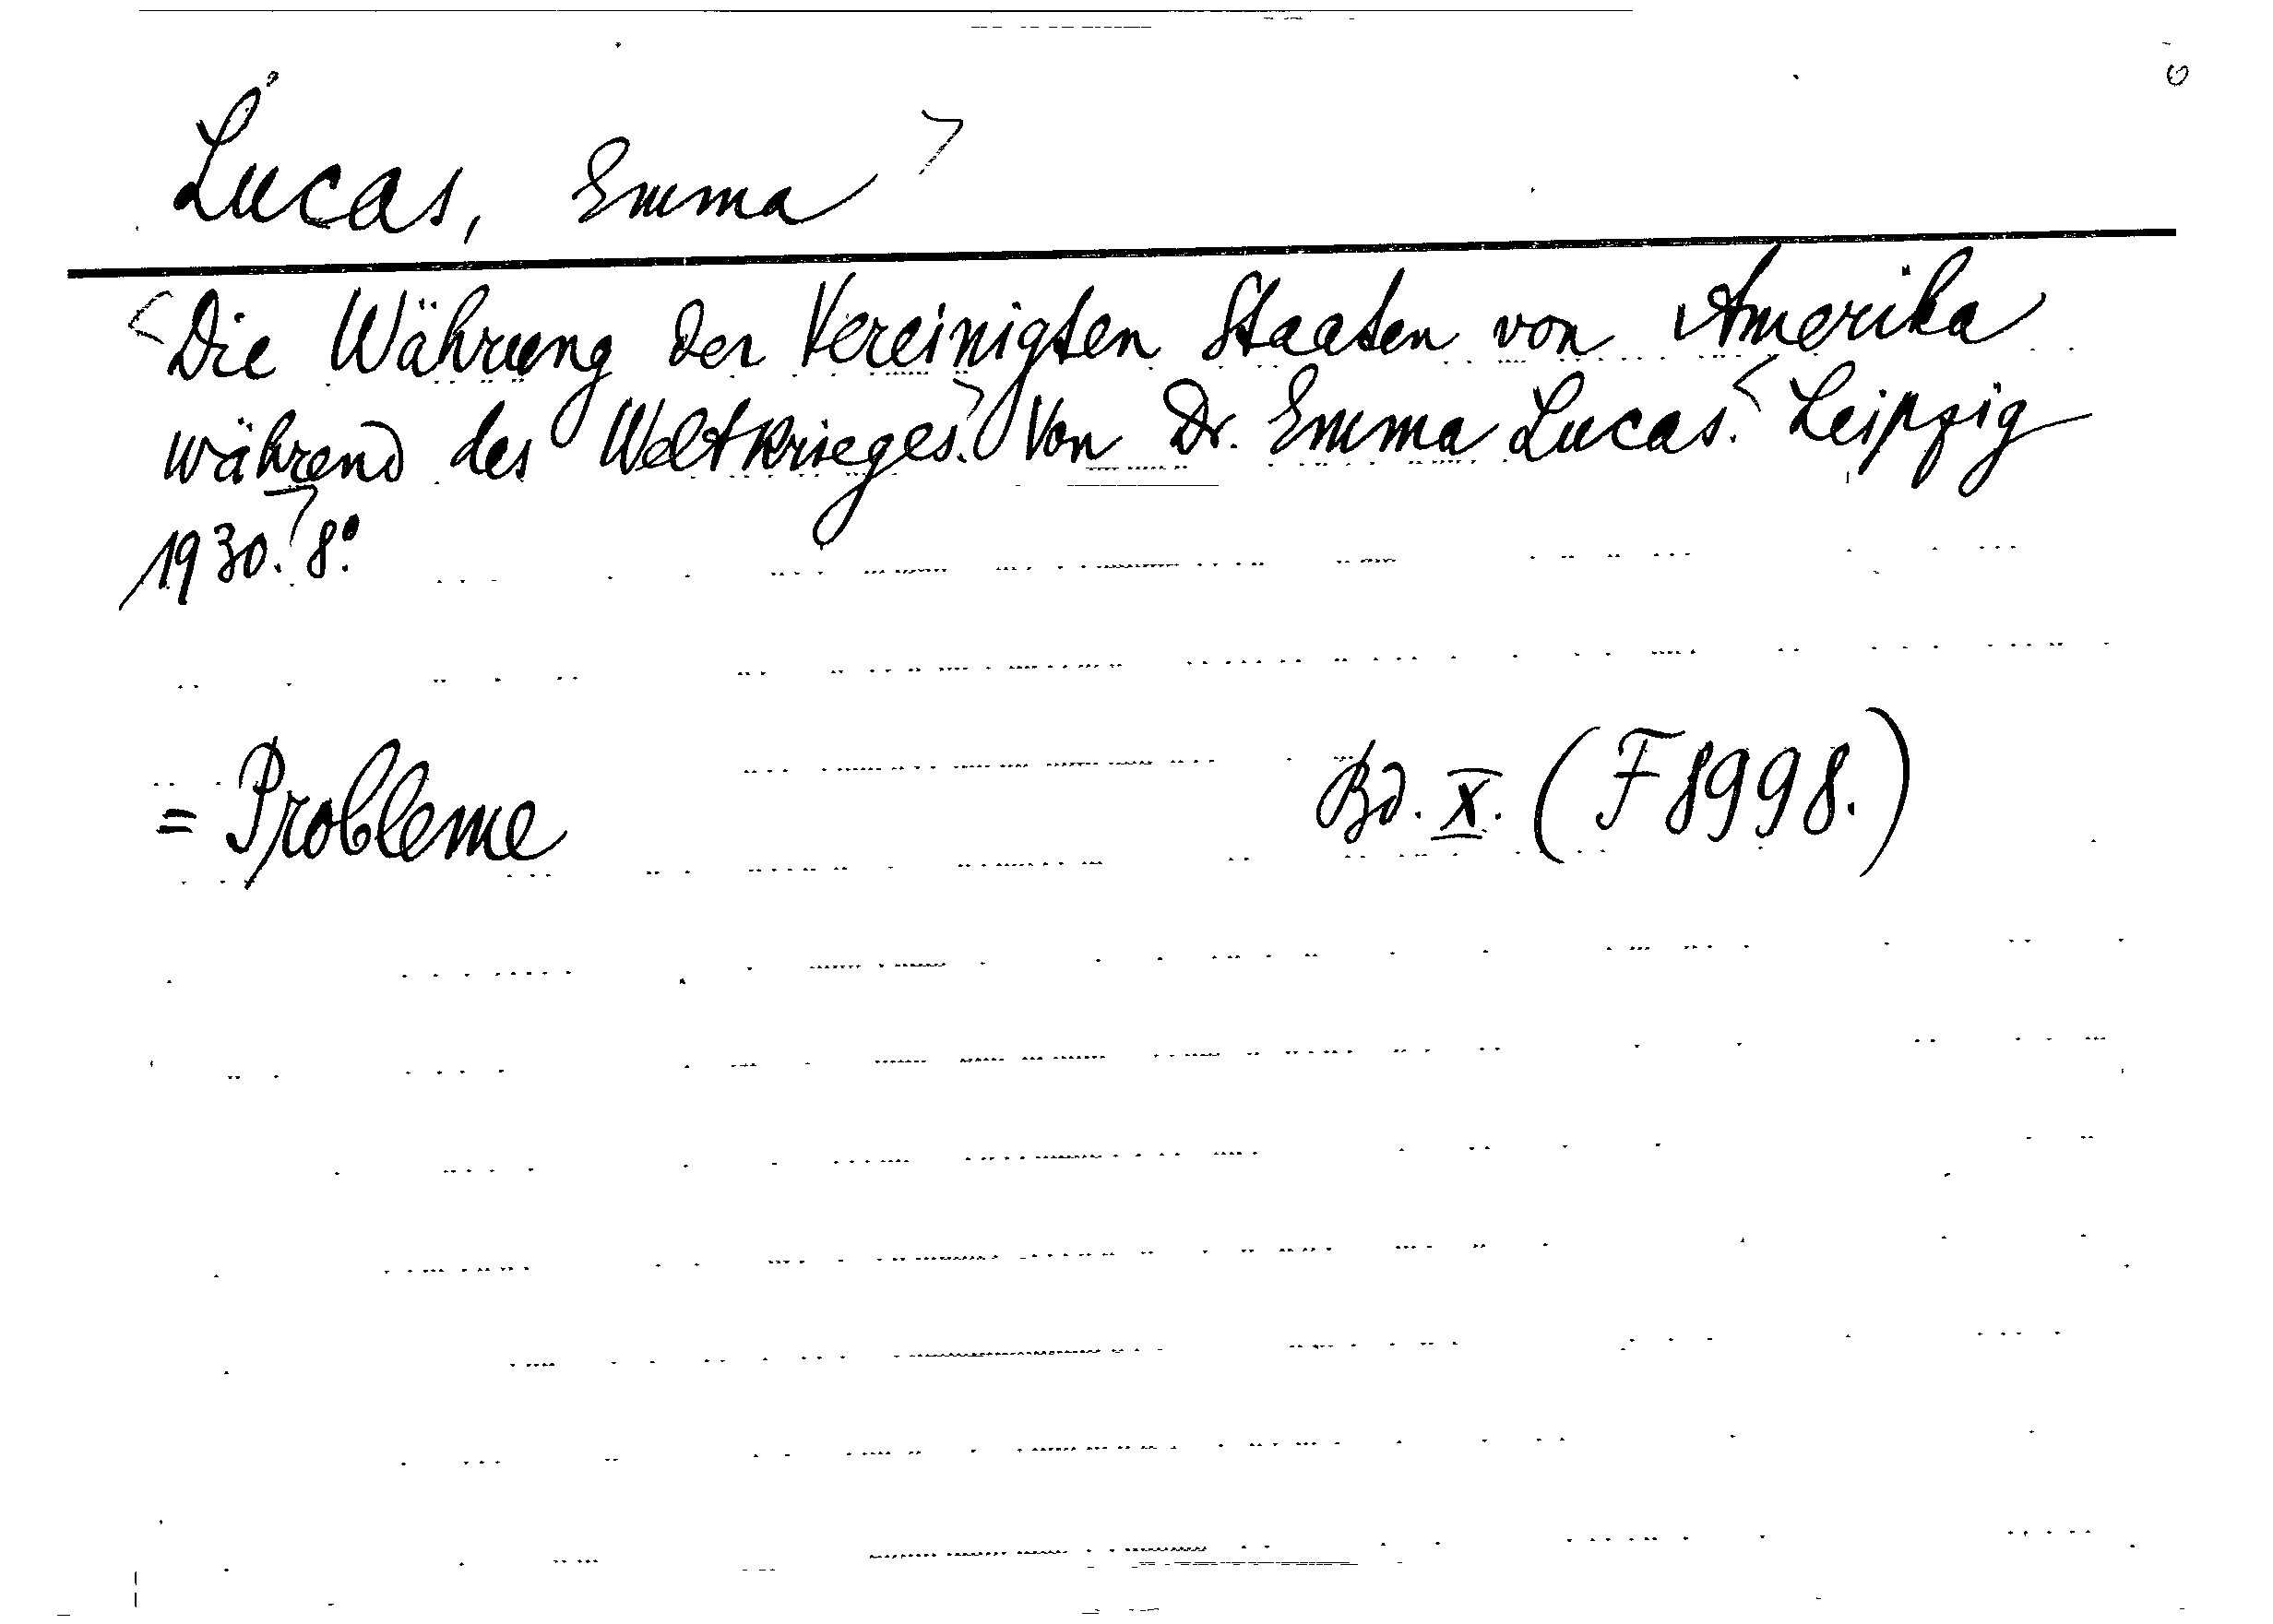 Lucas, Emma
Die Währung der Vereinigten Staaten von Amerika
während des Weltkrieges. Von Dr. Emma Lucas. Leipzig
1930. 8°.
= Probleme Bd. X. (F 8998.)